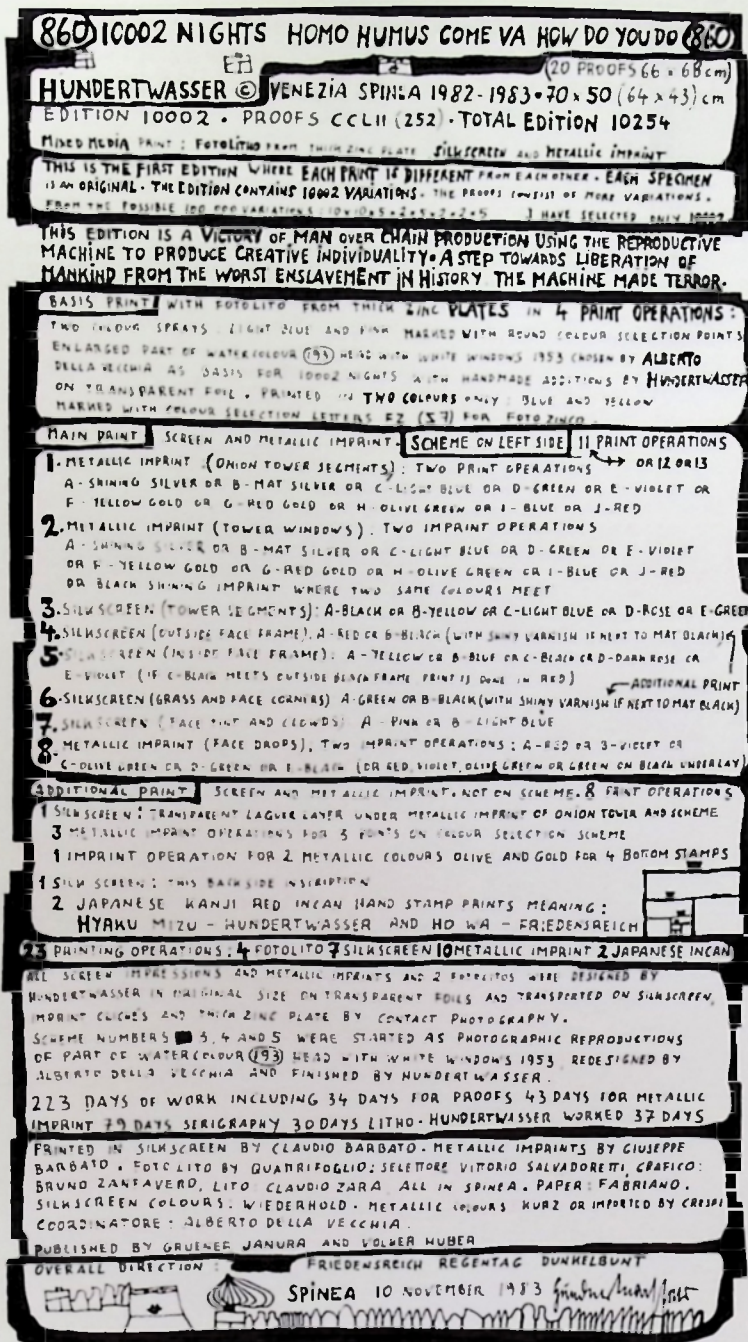 860 10002 NIGHTS HOMO HUMUS COME VA HOW DO YOU DO 860
(20 PROOFS 66 × 68 cm)
HUNDERTWASSER © VENEZIA SPINEA 1982-1983 • 70 × 50 (64 × 43) cm
EDITION 10002 • PROOFS CCLII (252) • TOTAL EDITION 10254
MIXED MEDIA PRINT : FOTOLITHO FROM THICK ZINC PLATE SILKSCREEN AND METALLIC IMPRINT
THIS IS THE FIRST EDITION WHERE EACH PRINT IS DIFFERENT FROM EACH OTHER • EACH SPECIMEN
IS AN ORIGINAL • THE EDITION CONTAINS 10002 VARIATIONS • THE PROOFS CONSIST OF MORE VARIATIONS •
FROM THE POSSIBLE VARIATIONS I HAVE SELECTED ONLY
THIS EDITION IS A VICTORY OF MAN OVER CHAIN PRODUCTION USING THE REPRODUCTIVE
MACHINE TO PRODUCE CREATIVE INDIVIDUALITY • A STEP TOWARDS LIBERATION OF
MANKIND FROM THE WORST ENSLAVEMENT IN HISTORY THE MACHINE MADE TERROR.
BASIS PRINT WITH FOTOLITO FROM THICK ZINC PLATES IN 4 PRINT OPERATIONS :
TWO COLOUR SPRAYS LIGHT BLUE AND PINK MARKED WITH ROUND COLOUR SELECTION POINTS
ENLARGED PART OF WATERCOLOUR (193) HEAD WITH WHITE WINDOWS 1953 CHOSEN BY ALBERTO
DELLA VECCHIA AS BASIS FOR 10002 NIGHTS WITH HANDMADE ADDITIONS BY HUNDERTWASSER
ON TRANSPARENT FOIL • PRINTED IN TWO COLOURS ONLY : BLUE AND YELLOW
MARKED WITH COLOUR SELECTION LETTERS FZ (57) FOR FOTOZINCO
MAIN PRINT SCREEN AND METALLIC IMPRINT • SCHEME ON LEFT SIDE 11 PRINT OPERATIONS
OR 12 OR 13
1. METALLIC IMPRINT (ONION TOWER SEGMENTS) : TWO PRINT OPERATIONS
A - SHINING SILVER OR B - MAT SILVER OR C - LIGHT BLUE OR D - GREEN OR E - VIOLET OR
F - YELLOW GOLD OR G - RED GOLD OR H - OLIVE GREEN OR I - BLUE OR J - RED
2. METALLIC IMPRINT (TOWER WINDOWS). TWO IMPRINT OPERATIONS
A - SHINING SILVER OR B - MAT SILVER OR C - LIGHT BLUE OR D - GREEN OR E - VIOLET
OR F - YELLOW GOLD OR G - RED GOLD OR H - OLIVE GREEN OR I - BLUE OR J - RED
OR BLACK SHINING IMPRINT WHERE TWO SAME COLOURS MEET
3. SILKSCREEN (TOWER SEGMENTS) : A - BLACK OR B - YELLOW OR C - LIGHT BLUE OR D - ROSE OR E - GREEN
4. SILKSCREEN (OUTSIDE FACE FRAME). A - RED OR B - BLACK (WITH SHINY VARNISH IF NEXT TO MAT BLACK)
5. SILKSCREEN (INSIDE FACE FRAME) : A - YELLOW OR B - BLUE OR C - BLACK OR D - DARK ROSE OR
E - VIOLET (IF C - BLACK MEETS OUTSIDE BLACK FRAME PRINT IS DONE IN RED) ADDITIONAL PRINT
6. SILKSCREEN (GRASS AND FACE CORNERS) A - GREEN OR B - BLACK (WITH SHINY VARNISH IF NEXT TO MAT BLACK)
7. SILKSCREEN (FACE TINT AND CLOWDS) A - PINK OR B - LIGHT BLUE
8. METALLIC IMPRINT (FACE DROPS); TWO IMPRINT OPERATIONS : A - RED OR B - VIOLET OR
C - OLIVE GREEN OR D - GREEN OR E - BLACK (OR RED, VIOLET, OLIVE GREEN OR GREEN ON BLACK UNDERLAY)
ADDITIONAL PRINT SCREEN AND METALLIC IMPRINT. NOT ON SCHEME. 8 PRINT OPERATIONS
1 SILKSCREEN : TRANSPARENT LAQUER LAYER UNDER METALLIC IMPRINT OF ONION TOWER AND SCHEME
3 METALLIC IMPRINT OPERATIONS FOR 3 POINTS ON COLOUR SELECTION SCHEME
1 IMPRINT OPERATION FOR 2 METALLIC COLOURS OLIVE AND GOLD FOR 4 BOTTOM STAMPS
1 SILK SCREEN : THIS BACKSIDE INSCRIPTION
2 JAPANESE KANJI RED INCAN HAND STAMP PRINTS MEANING :
HYAKU MIZU - HUNDERTWASSER AND HO WA - FRIEDENSREICH
23 PRINTING OPERATIONS : 4 FOTOLITO 7 SILKSCREEN 10 METALLIC IMPRINT 2 JAPANESE INCAN
ALL SCREEN IMPRESSIONS AND METALLIC IMPRINTS AND 2 FOTOLITOS WERE DESIGNED BY
HUNDERTWASSER IN ORIGINAL SIZE ON TRANSPARENT FOILS AND TRANSPORTED ON SILKSCREEN,
IMPRINT CLICHES AND THICK ZINC PLATE BY CONTACT PHOTOGRAPHY.
SCHEME NUMBERS 3, 4 AND 5 WERE STARTED AS PHOTOGRAPHIC REPRODUCTIONS
OF PART OF WATERCOLOUR (193) HEAD WITH WHITE WINDOWS 1953 REDESIGNED BY
ALBERTO DELLA VECCHIA AND FINISHED BY HUNDERTWASSER.
223 DAYS OF WORK INCLUDING 34 DAYS FOR PROOFS 43 DAYS FOR METALLIC
IMPRINT 79 DAYS SERIGRAPHY 30 DAYS LITHO • HUNDERTWASSER WORKED 37 DAYS
PRINTED IN SILKSCREEN BY CLAUDIO BARBATO. METALLIC IMPRINTS BY GIUSEPPE
BARBATO. FOTOLITO BY QUADRIFOGLIO: SELETTORE VITTORIO SALVADORETTI, GRAFICO:
BRUNO ZANFAVERO, LITO CLAUDIO ZARA ALL IN SPINEA. PAPER : FABRIANO.
SILKSCREEN COLOURS : WIEDERHOLD. METALLIC COLOURS KURZ OR IMPORTED BY CRESPI
COORDINATORE : ALBERTO DELLA VECCHIA.
PUBLISHED BY GRUENER JANURA AND VOLKER HUBER
OVERALL DIRECTION : FRIEDENSREICH REGENTAG DUNKELBUNT
SPINEA 10 NOVEMBER 1983